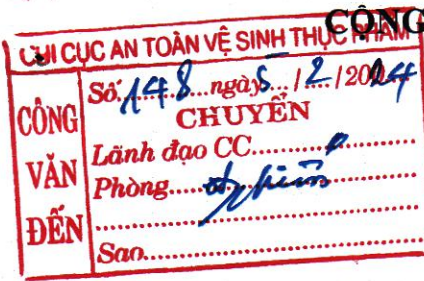 CỘNG
CHI CỤC AN TOÀN VỆ SINH THỰC PHẨM
CÔNG VĂN ĐẾN
Số: 148 ngày 5 / 2 / 2024
CHUYỂN
Lãnh đạo CC
Phòng
Sao